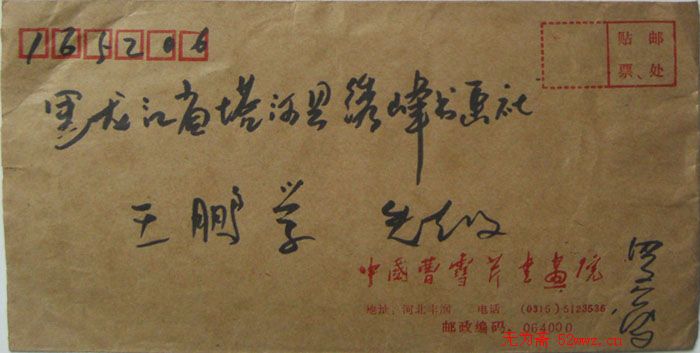 165200
贴 邮
票 处
黑龙江省塔河县绣峰书画社
王鹏学 先生收
中國曹雪芹書畫院
地址：河北丰润 电话 (0315)5123536
邮政编码：064000
无为斋 52wwz.cn